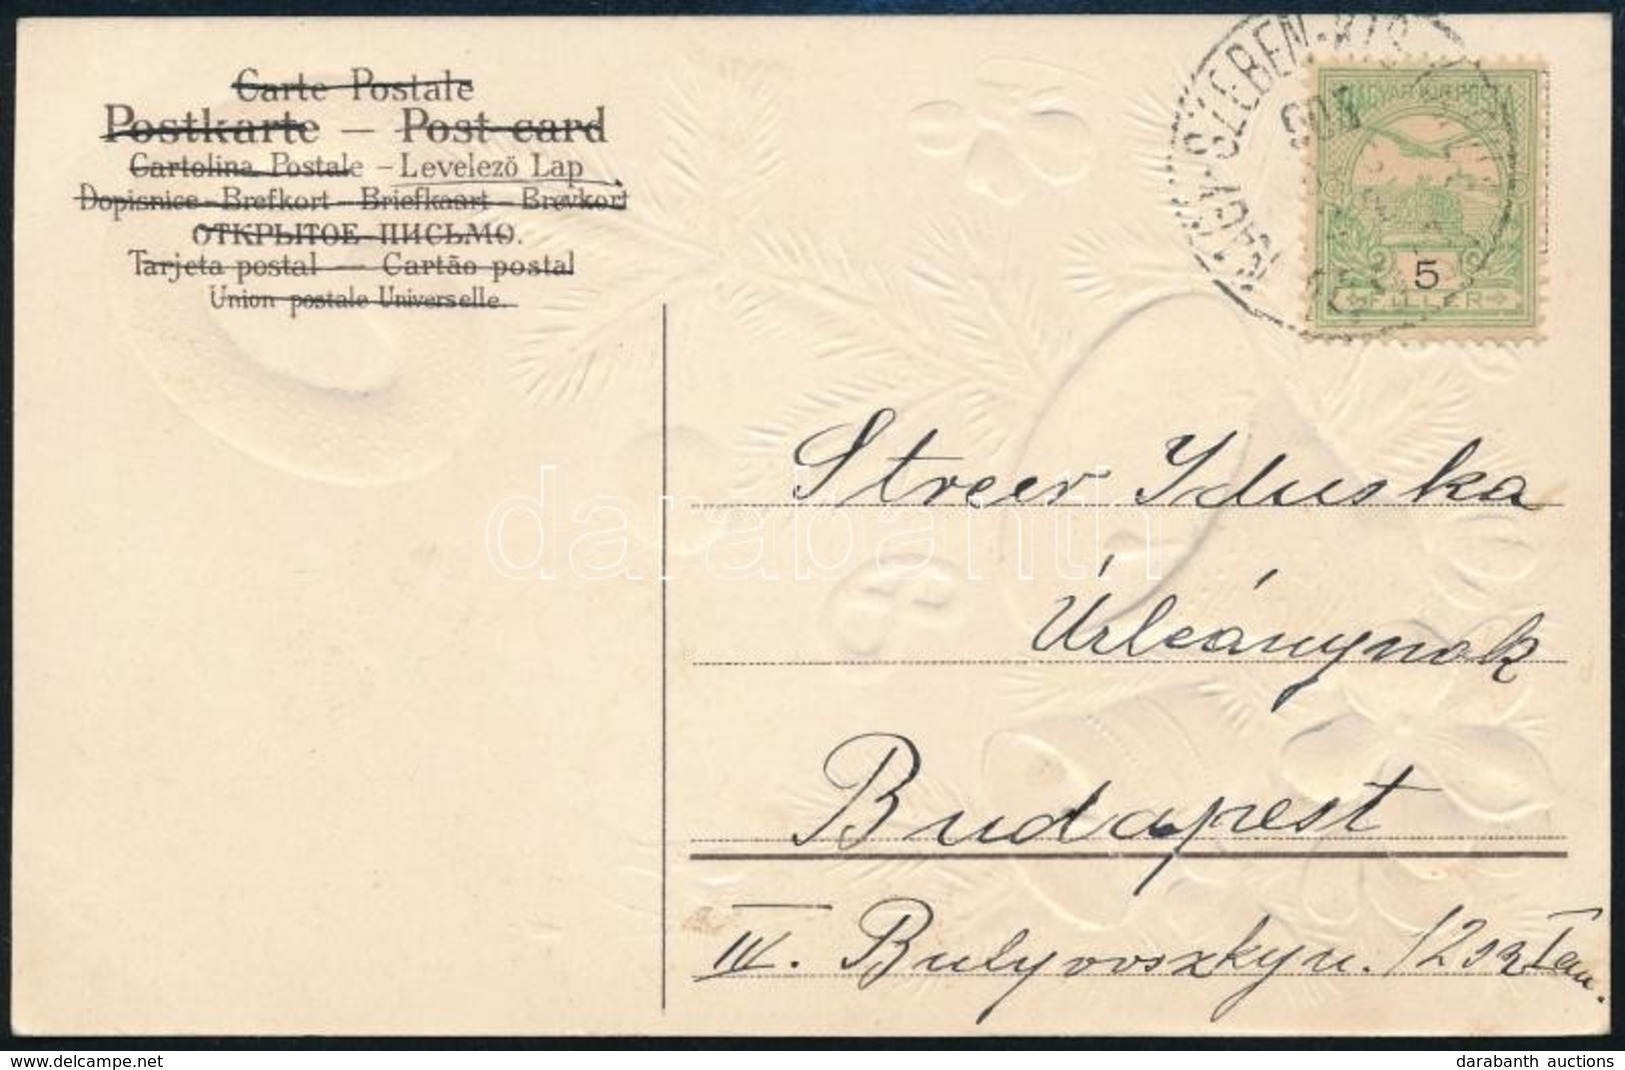 Carte Postale
Postkarte — Post card
Cartolina Postale – Levelező Lap
Dopisnice – Brefkort – Briefkaart – Brevkort
ОТКРЫТОЕ ПИСЬМО.
Tarjeta postal — Cartão postal
Union postale Universelle.
NAGY-SZEBEN-KIS
MAGYAR KIR POSTA
5
FILLER
Streer Iduska
Úrleánynak
Budapest
IV. Bulyovszky u.
darabanth
darabanth auctions
https://www.delcampe.net